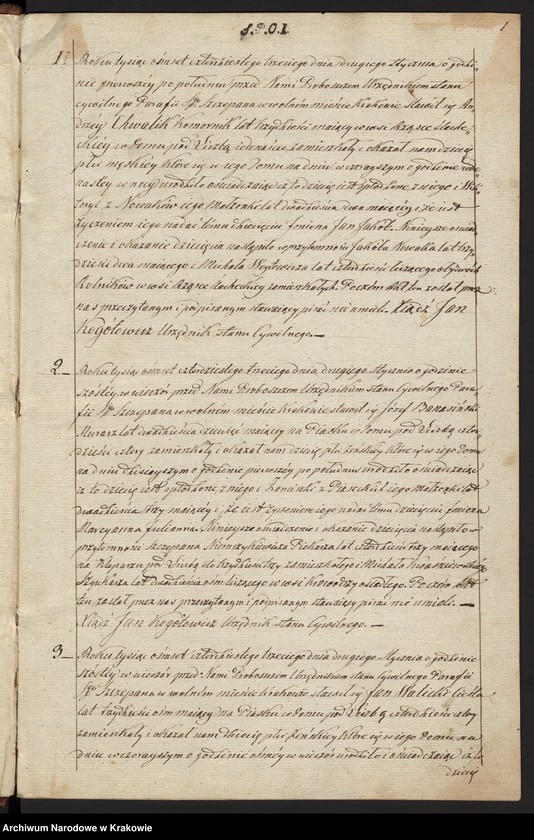 S.P.O.I.
1
1. Roku tysiąc ośmset czterdziestego trzeciego dnia drugiego Stycznia o godzi-
nie pierwszej po południu przed Nami Proboszczem Urzędnikiem stanu
cywilnego Parafii Sgo Szczepana w wolném mieście Krakowie stawił się An-
drzéj Chwalik Komornik lat trzydzieści mający w wsi Krzące Szlache-
ckiéj w Domu pod Liczbą zamieszkały i okazał nam dziecię
płci męzkiéj które się w jego Domu na dniu wczorayszym o godzinie
w nocy urodziło oświadczając iż to dziecię jest spłodzone z niego i
z Nowaków jego Małżonki lat dwadzieścia dwa mającéj i że jest
życzeniem jego nadać temu dziecięciu Imiona Jan Jakób. Niniejsze oświad-
czenie i okazanie dziecięcia nastąpiło w przytomności Jakóba Nowaka lat trzy-
dzieści dwa mającego i Michała Woytowicza lat czterdzieści liczącego obydwóch
Rolników w wsi Krzące Szlacheckiéj zamieszkałych. Poczém Akt ten został przez
nas przeczytanym i podpisanym stawający pisać nie umieli. Xiądz Jan
Rogółowicz Urzędnik stanu Cywilnego.
2. Roku tysiąc ośmset czterdziestego trzeciego dnia drugiego Stycznia o godzinie
szóstéj w wieczór przed Nami Proboszczem Urzędnikiem stanu Cywilnego Para-
fii Sgo Szczepana w wolném mieście Krakowie stawił się Józef Banasiński
Murarz lat dwadzieścia dziewięć mający na Piasku w Domu pod Liczbą czter-
dzieści cztery zamieszkały i okazał nam dziecię płci żeńskiéj które się w jego Domu
na dniu dzisiejszym o godzinie pierwszéj po południu urodziło oświadczając
iż to dziecię jest spłodzone z niego i z Piaseckich jego Małżonki lat
dwadzieścia trzy mającéj i że jest życzeniem jego nadać temu dziecięciu Imiona
Marcyanna Julianna. Niniejsze oświadczenie i okazanie dziecięcia nastąpiło w
przytomności Szczepana Niemczykiewicza Piekarza lat czterdzieści trzy mającego
na Kleparzu pod Liczbą sto trzydzieści trzy zamieszkałego i Michała
lat dwadzieścia ośm liczącego w wsi osiadłego. Poczém Akt
ten został przez nas przeczytanym i podpisanym stawający pisać nie umieli.
Xiądz Jan Rogółowicz Urzędnik stanu Cywilnego.
3. Roku tysiąc ośmset czterdziestego trzeciego dnia drugiego Stycznia o godzinie
szóstéj w wieczór przed Nami Proboszczem Urzędnikiem stanu Cywilnego Parafii
Sgo Szczepana w wolném mieście Krakowie stawił się Jan Malicki Cieśla
lat trzydzieści ośm mający na Piasku w Domu pod Liczbą czterdzieści cztery
zamieszkały i okazał nam dziecię płci żeńskiéj które się w jego Domu na
dniu wczorayszym o godzinie ósméj w wieczór urodziło oświadczając iż to
dziecię
Archiwum Narodowe w Krakowie